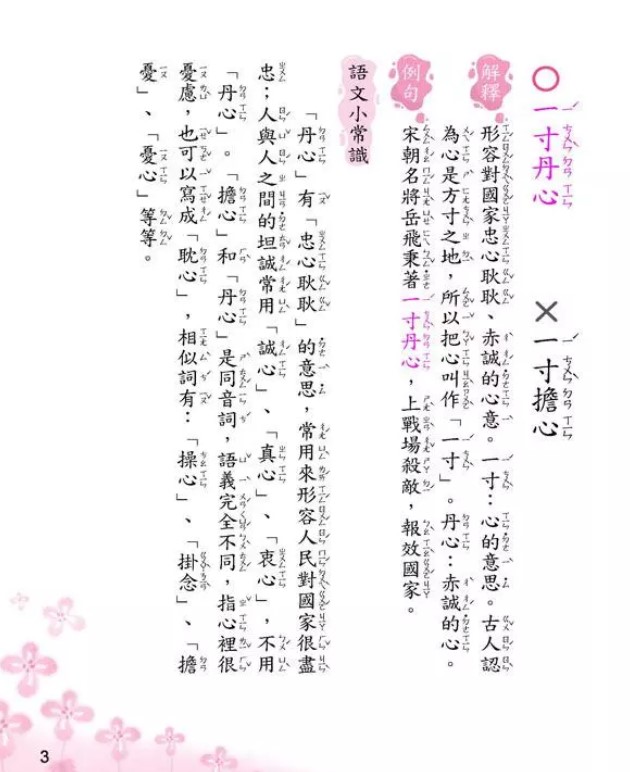 ○一寸丹心 ×一寸擔心
解釋
形容對國家忠心耿耿、赤誠的心意。一寸：心的意思。古人認
為心是方寸之地，所以把心叫作「一寸」。丹心：赤誠的心。
例句
宋朝名將岳飛秉著一寸丹心，上戰場殺敵，報效國家。
語文小常識
「丹心」有「忠心耿耿」的意思，常用來形容人民對國家很盡
忠；人與人之間的坦誠常用「誠心」、「真心」、「衷心」，不用
「丹心」。「擔心」和「丹心」是同音詞，語義完全不同，指心裡很
憂慮，也可以寫成「耽心」，相似詞有：「操心」、「掛念」、「擔
憂」、「憂心」等等。
3